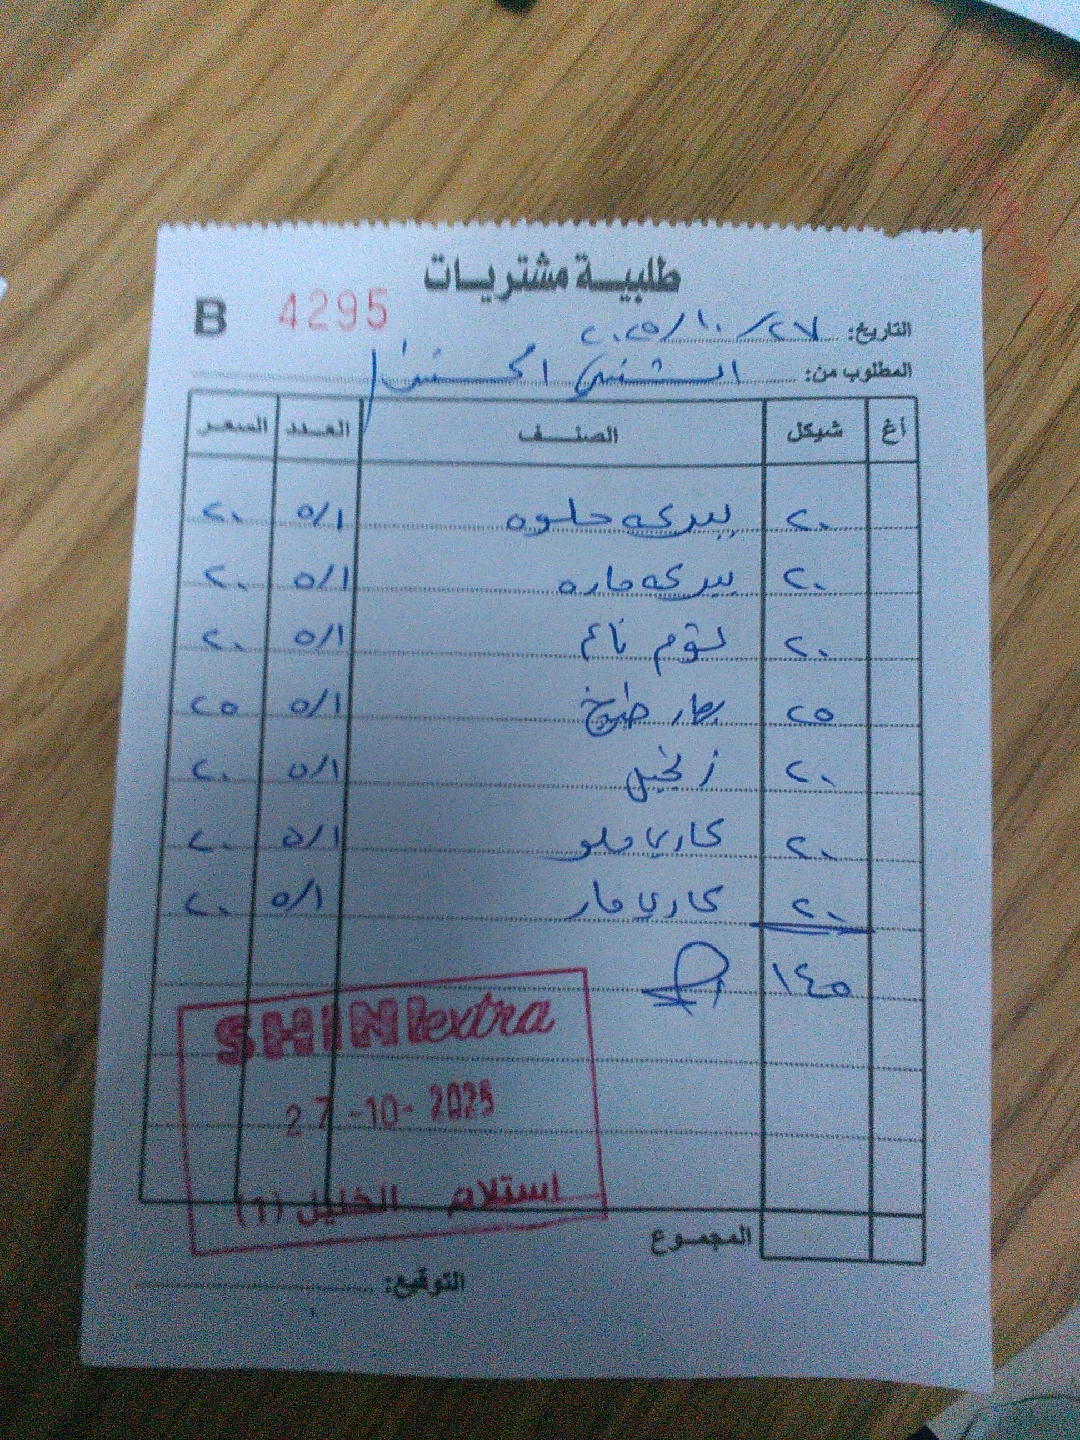 طلبية مشتريات
B 4295
التاريخ: ٢٧/١٠/٢٠٢٥
المطلوب من:
أغ شيكل الصنف العدد السعر
٢٠ ببريكه حلوه ٥/١ ٢٠
٢٠ ببريكه حاره ٥/١ ٢٠
٢٠ ثوم ناعم ٥/١ ٢٠
٢٥ بهار طبيخ ٥/١ ٢٥
٢٠ زنجبيل ٥/١ ٢٠
٢٠ كاري حلو ٥/١ ٢٠
٢٠ كاري حار ٥/١ ٢٠
١٤٥
SHINI extra
27-10-2025
استلام الخليل (1)
المجموع
التوقيع: